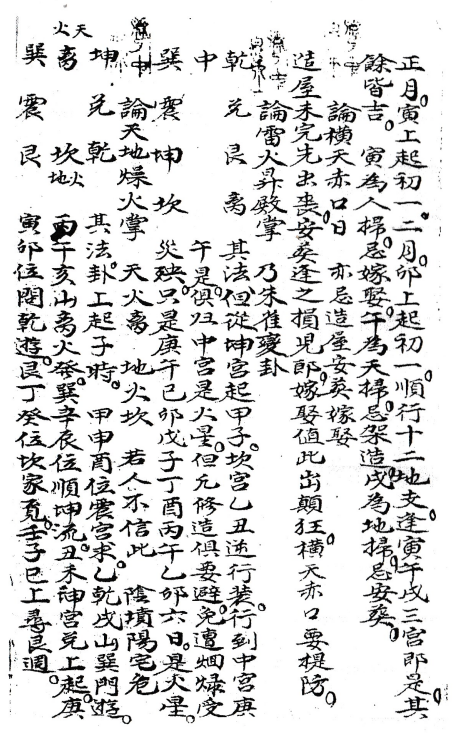 正月寅上起初一。二月卯上起初一。順行十二地支。逢寅午戌三宮即是。其
餘皆吉。寅為人掃。忌嫁娶。午為天掃。忌架造。戌為地掃。忌安葬。
論橫天赤口日　亦忌造屋安葬嫁娶
造屋未完先出喪。安葬逢之損兒郎。嫁娶值此出顛狂。橫天赤口要提防。
論雷火昇殿掌　乃朱雀變卦
乾　兌　艮　離　其法但從坤宮起甲子。坎宮乙丑。逆行裝。行到中宮庚
中　午是。俱归中宮是火星。但凡修造俱要避免。遭烟燥受
巽　震　坤　坎　災殃。只是庚午己卯戊子丁酉丙午乙卯六日。是火星。
論天地燥火掌　天火离　地火坎　若人不信此　陰墳陽宅危
坤　兌　乾　其法卦上起子時。甲申酉位震宮求。乙乾戌山巽門遊。
天火　离　坎　地火　丙午亥山离火發。巽辛辰位順坤流。丑未神宮兌上起。庚
巽　震　艮　寅卯位問乾遊。艮丁癸位坎家覓。壬子巳上尋艮週。